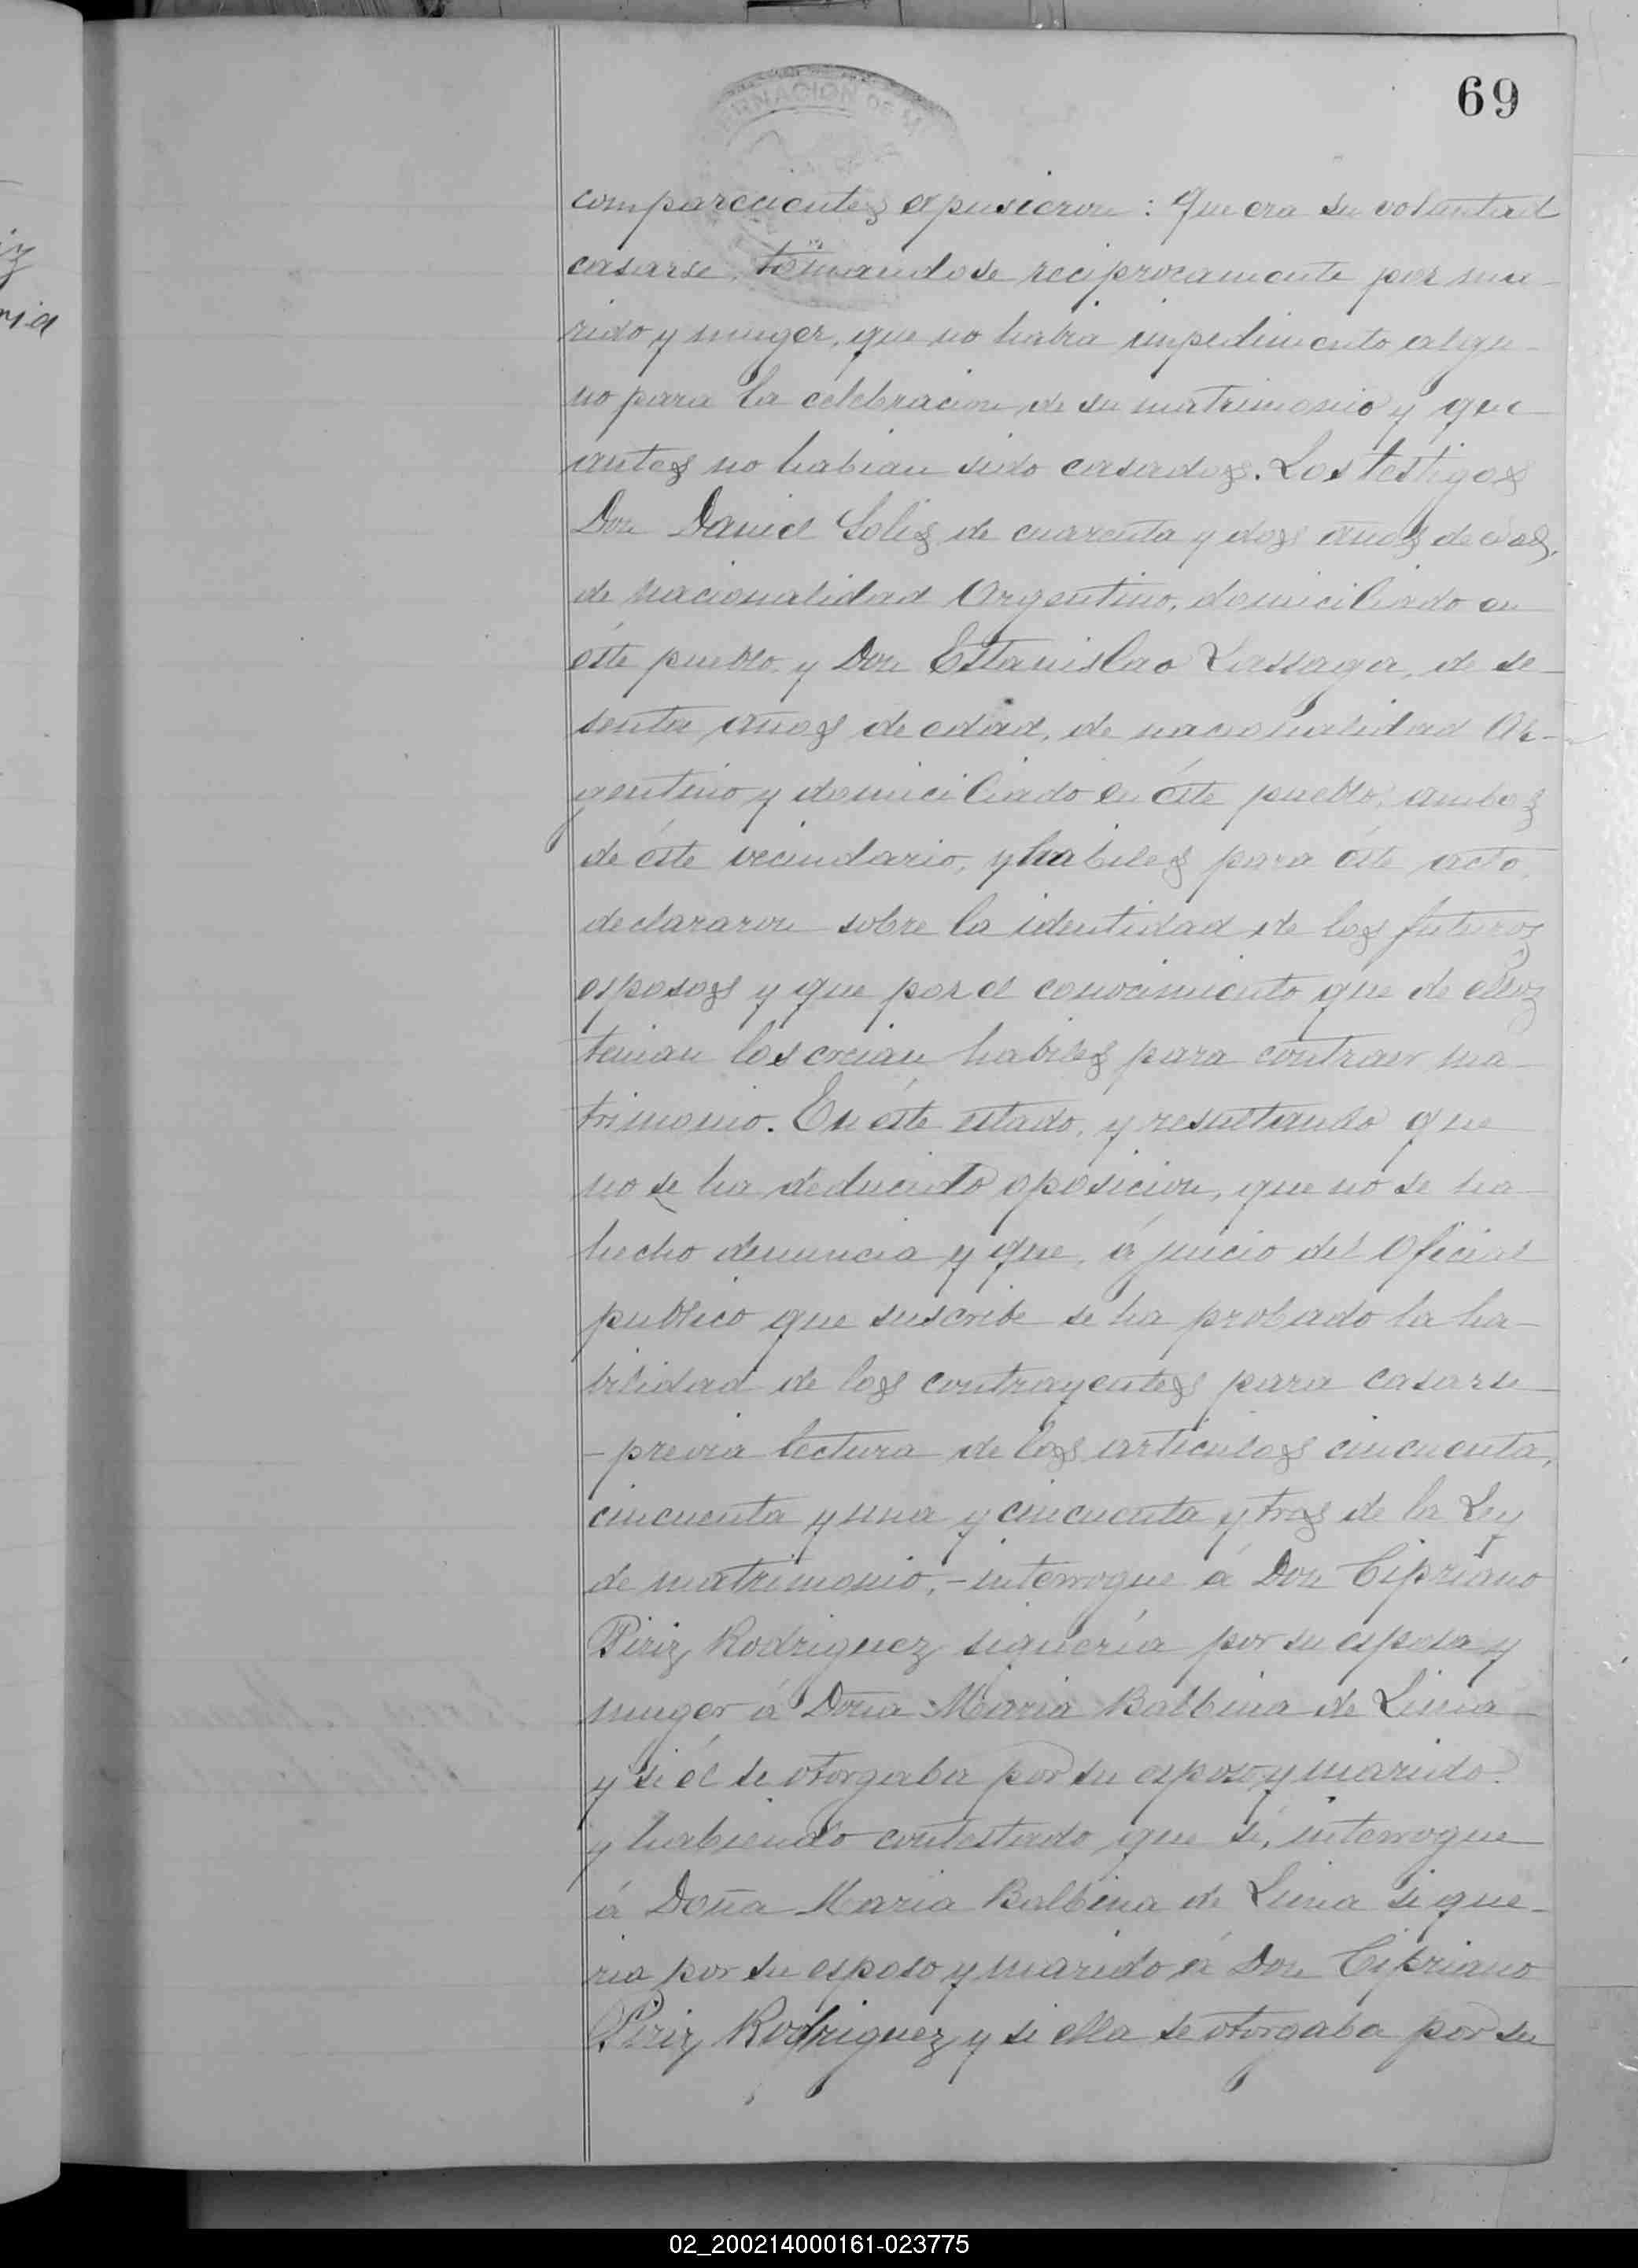 69
RNACION DE M
comparecientes expusieron: Que era su voluntad
casarse, tomandose reciprocamente por ma-
rido y muger, que no habia impedimento algu-
no para la celebracion de su matrimonio y que
antes no habian sido casados. Los testigos
Don Daniel Solis de cuarenta y dos años de edad,
de nacionalidad Argentino, domiciliado en
éste pueblo y Don Estanislao Lassaga, de se-
senta años de edad, de nacionalidad Ar-
gentino y domiciliado en éste pueblo, ambos
de éste vecindario, y habiles para éste acto,
declararon sobre la identidad de los futuros
esposos y que por el conocimiento que de ellos
tenian los creian habiles para contraer ma-
trimonio. En éste estado, y resultando que
no se ha deducido oposicion, que no se ha
hecho denuncia y que, á juicio del Oficial
publico que suscribe se ha probado la ha-
bilidad de los contrayentes para casarse
- previa lectura de los articulos cincuenta,
cincuenta y una y cincuenta y tres de la Ley
de matrimonio, - interrogue á Don Cipriano
Piriz Rodriguez si queria por su esposa y
muger á Doña Maria Balbina de Lima
y si él se otorgaba por su esposo y marido?
y habiendo contestado que si, interrogue
á Doña Maria Balbina de Lima si que-
ria por su esposo y marido á Don Cipriano
Piriz Rodriguez y si ella se otorgaba por su
ria
02_200214000161-023775